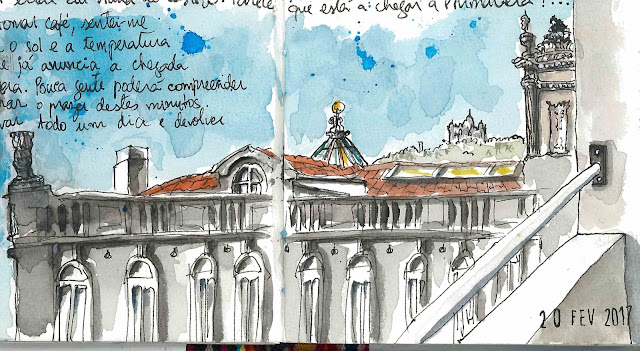 que está a chegar a Primavera!...
café, sentei-me
o sol e a temperatura
e já anuncia a chegada
Pouca gente poderá compreender
o prazer destes minutos.
todo um dia e devolver
20 FEV 2017